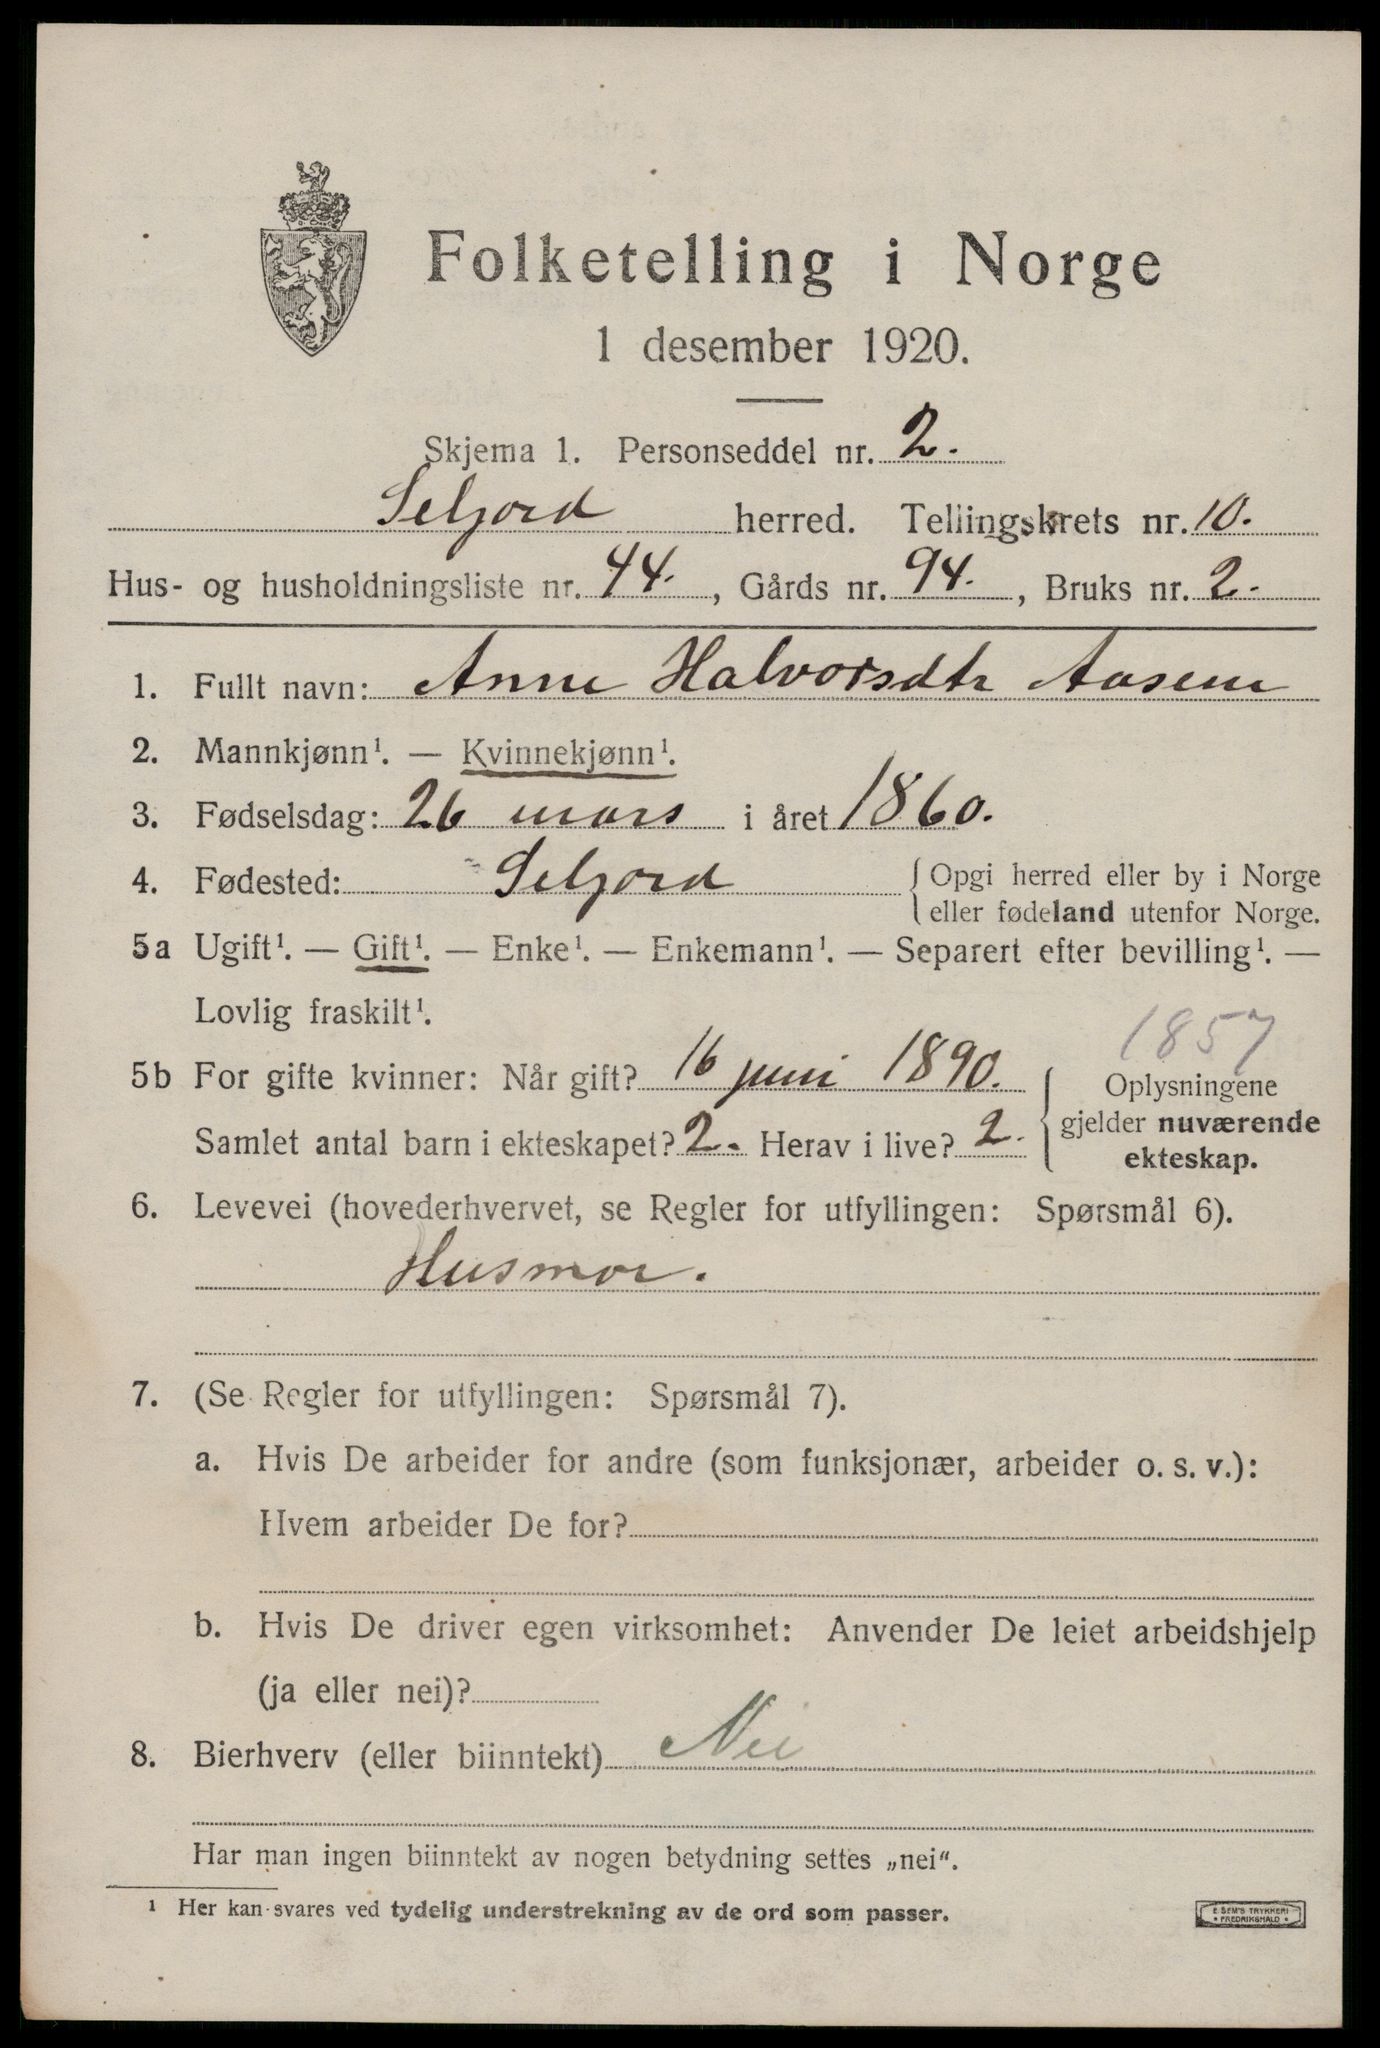 Folketelling i Norge
1 desember 1920.
Skjema 1. Personseddel nr. 2.
Seljord herred. Tellingskrets nr. 10.
Hus- og husholdningsliste nr. 44., Gårds nr. 94., Bruks nr. 2.
1. Fullt navn: Anne Halvorsdtr Aasene
2. Mannkjønn¹. — Kvinnekjønn¹.
3. Fødselsdag: 26 mars i året 1860.
4. Fødested: Seljord { Opgi herred eller by i Norge
eller fødeland utenfor Norge.
5a Ugift¹. — Gift¹. — Enke¹. — Enkemann¹. — Separert efter bevilling¹. —
Lovlig fraskilt¹.
1857
5b For gifte kvinner: Når gift? 16 juni 1890. { Oplysningene
gjelder nuværende
ekteskap.
Samlet antal barn i ekteskapet? 2. Herav i live? 2.
6. Levevei (hovederhvervet, se Regler for utfyllingen: Spørsmål 6).
Husmor.
7. (Se Regler for utfyllingen: Spørsmål 7).
a. Hvis De arbeider for andre (som funksjonær, arbeider o. s. v.):
Hvem arbeider De for?
b. Hvis De driver egen virksomhet: Anvender De leiet arbeidshjelp
(ja eller nei)?
8. Bierhverv (eller biinntekt) Nei
Har man ingen biinntekt av nogen betydning settes „nei“.
¹ Her kan svares ved tydelig understrekning av de ord som passer.
E. SEM'S TRYKKERI
• FREDRIKSHALD •